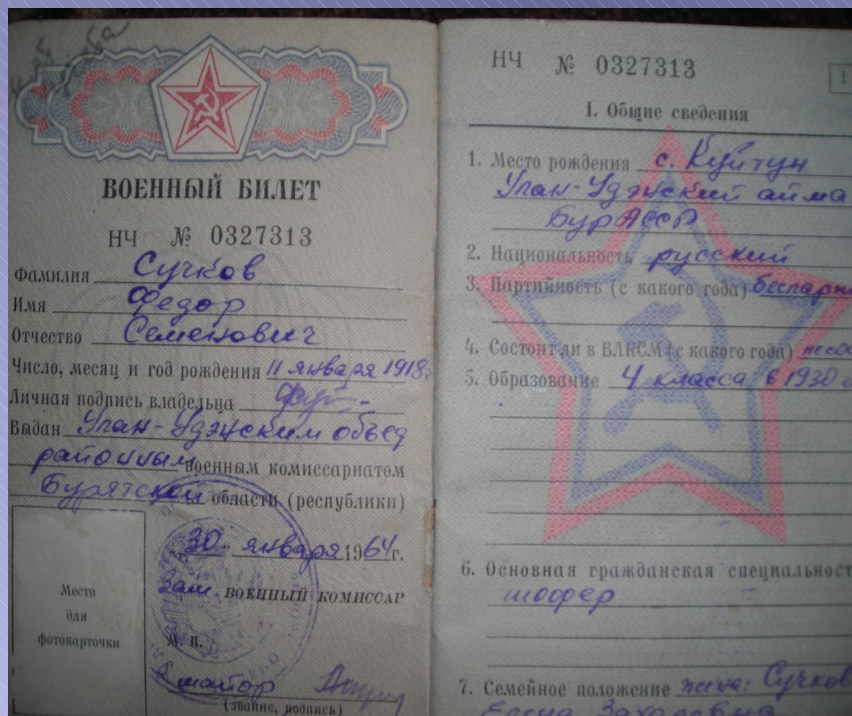 ВОЕННЫЙ БИЛЕТ
НЧ № 0327313
Фамилия Сучков
Имя Федор
Отчество Семенович
Число, месяц и год рождения 11 января 1918г.
Личная подпись владельца
Выдан Улан-Удэнским объед
районным военным комиссариатом
Бурятской области (республики)
„30“ января 1964г.
Зам. ВОЕННЫЙ КОМИССАР
М. П.
майор
(звание, подпись)
Место
для
фотокарточки
НЧ № 0327313
1
I. Общие сведения
1. Место рождения с. Куйтун
Улан-Удэнский айма
БурАССР
2. Национальность русский
3. Партийность (с какого года) беспарт
4. Состоит ли в ВЛКСМ (с какого года)
5. Образование 4 класса в 1930 г
6. Основная гражданская специальност
шофер
7. Семейное положение жена: Сучков
Елена Захаровна